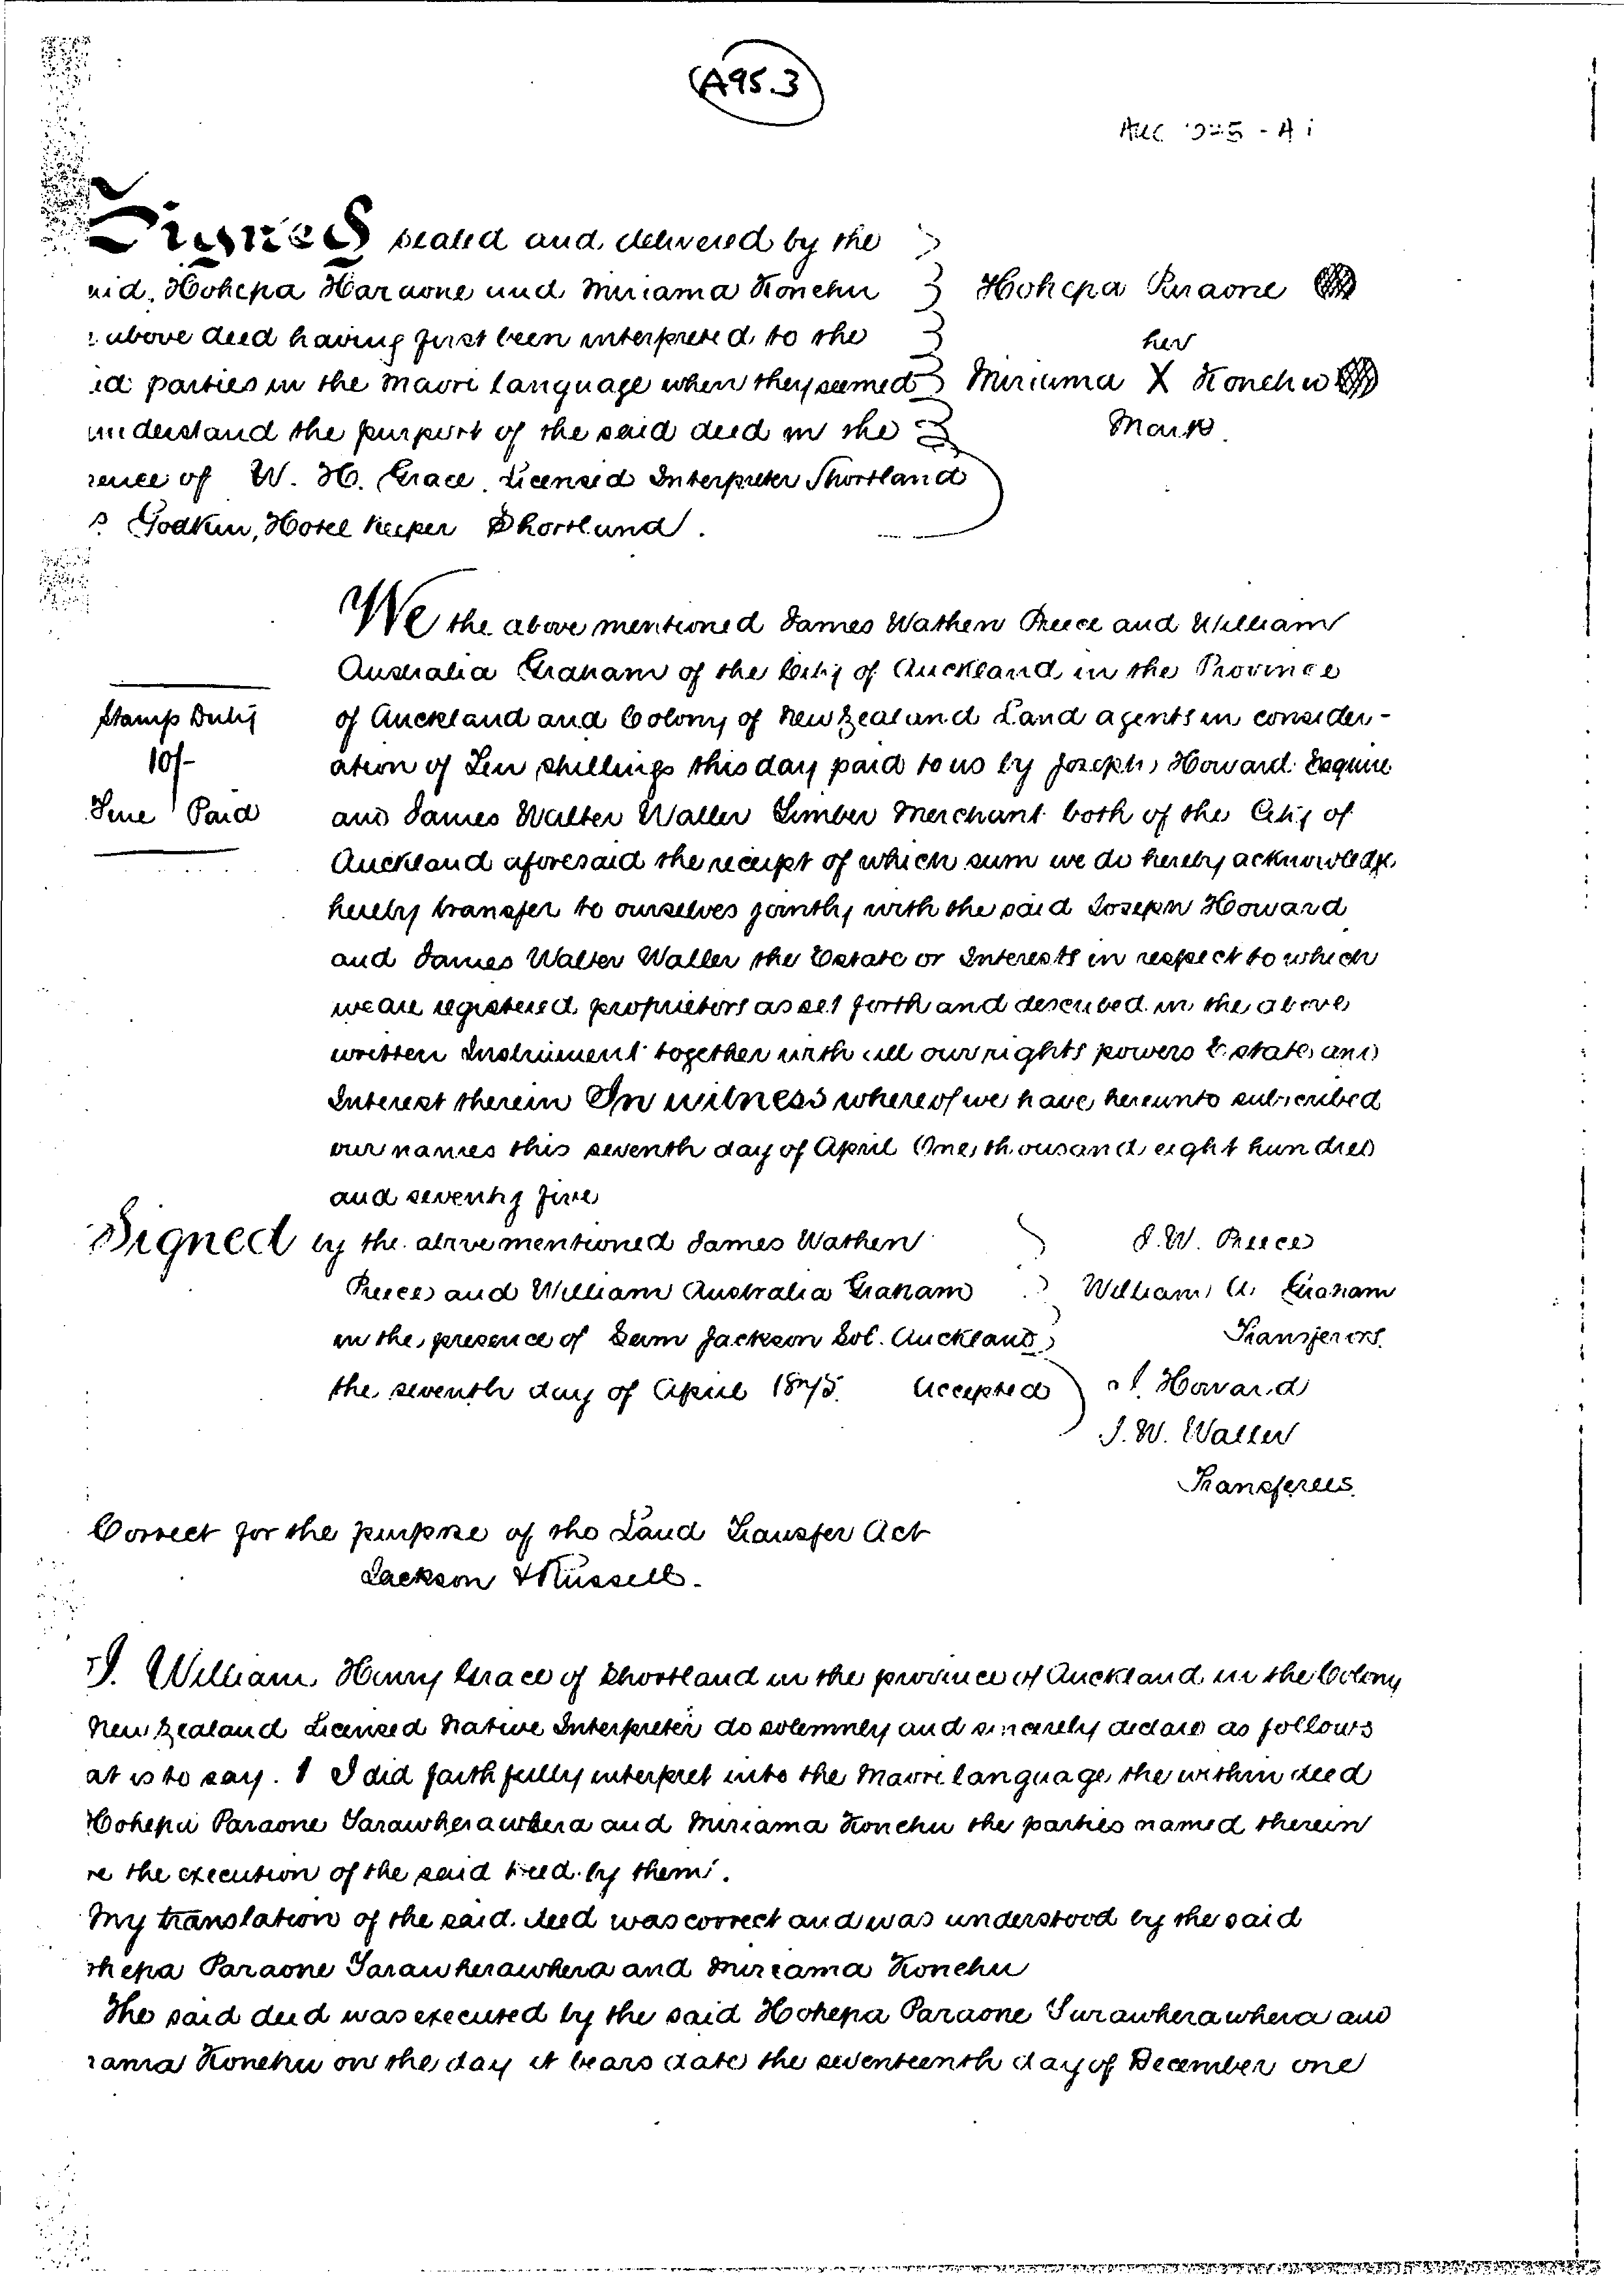 A95.3
Signed sealed and delivered by the
aid, Hohepa Haraone and Miriama Konehu } Hohepa Paraone
above deed having first been interpreted to the
her
id parties in the Maori language when they seemed } Miriama X Konehu
understand the purport of the said deed in the
Mark
rence of W. H. Grace. Licensed Interpreter Shortland
s Godkin, Hotel Keeper Shortland.
We the above mentioned James Wathen Preece and William
Australia Graham of the City of Auckland in the Province
Stamp Duty
of Auckland and Colony of New Zealand Land agents in consider-
10/-
ation of Ten shillings this day paid to us by Joseph Howard Esquire
Fine Paid
and James Walter Waller Timber Merchant both of the City of
Auckland aforesaid the receipt of which sum we do hereby acknowledge
hereby transfer to ourselves jointly with the said Joseph Howard
and James Walter Waller the Estate or Interests in respect to which
we are registered proprietors as set forth and described in the above
written Instrument together with all our rights powers Estate and
Interest therein In witness whereof we have hereunto subscribed
our names this seventh day of April One thousand eight hundred
and seventy five
Signed by the above mentioned James Wathen } J. W. Preece
Preece and William Australia Graham } William A. Graham
in the presence of Sam Jackson Sol. Auckland
Transferors.
the seventh day of April 1875. Accepted ) J. Howard
J. W. Waller
Transferees
Correct for the purpose of the Land Transfer Act
Jackson & Russell.
I. William Henry Grace of Shortland in the province of Auckland in the Colony
New Zealand Licensed Native Interpreter do solemnly and sincerely declare as follows
at is to say. 1 I did faithfully interpret into the Maori language the within deed
Hohepa Paraone Tarawherawhera and Miriama Konehu the parties named therein
re the execution of the said Deed by them.
My translation of the said deed was correct and was understood by the said
ohepa Paraone Tarawherawhera and Miriama Konehu
The said deed was executed by the said Hohepa Paraone Tarawherawhera and
iama Konehu on the day it bears date the seventeenth day of December one